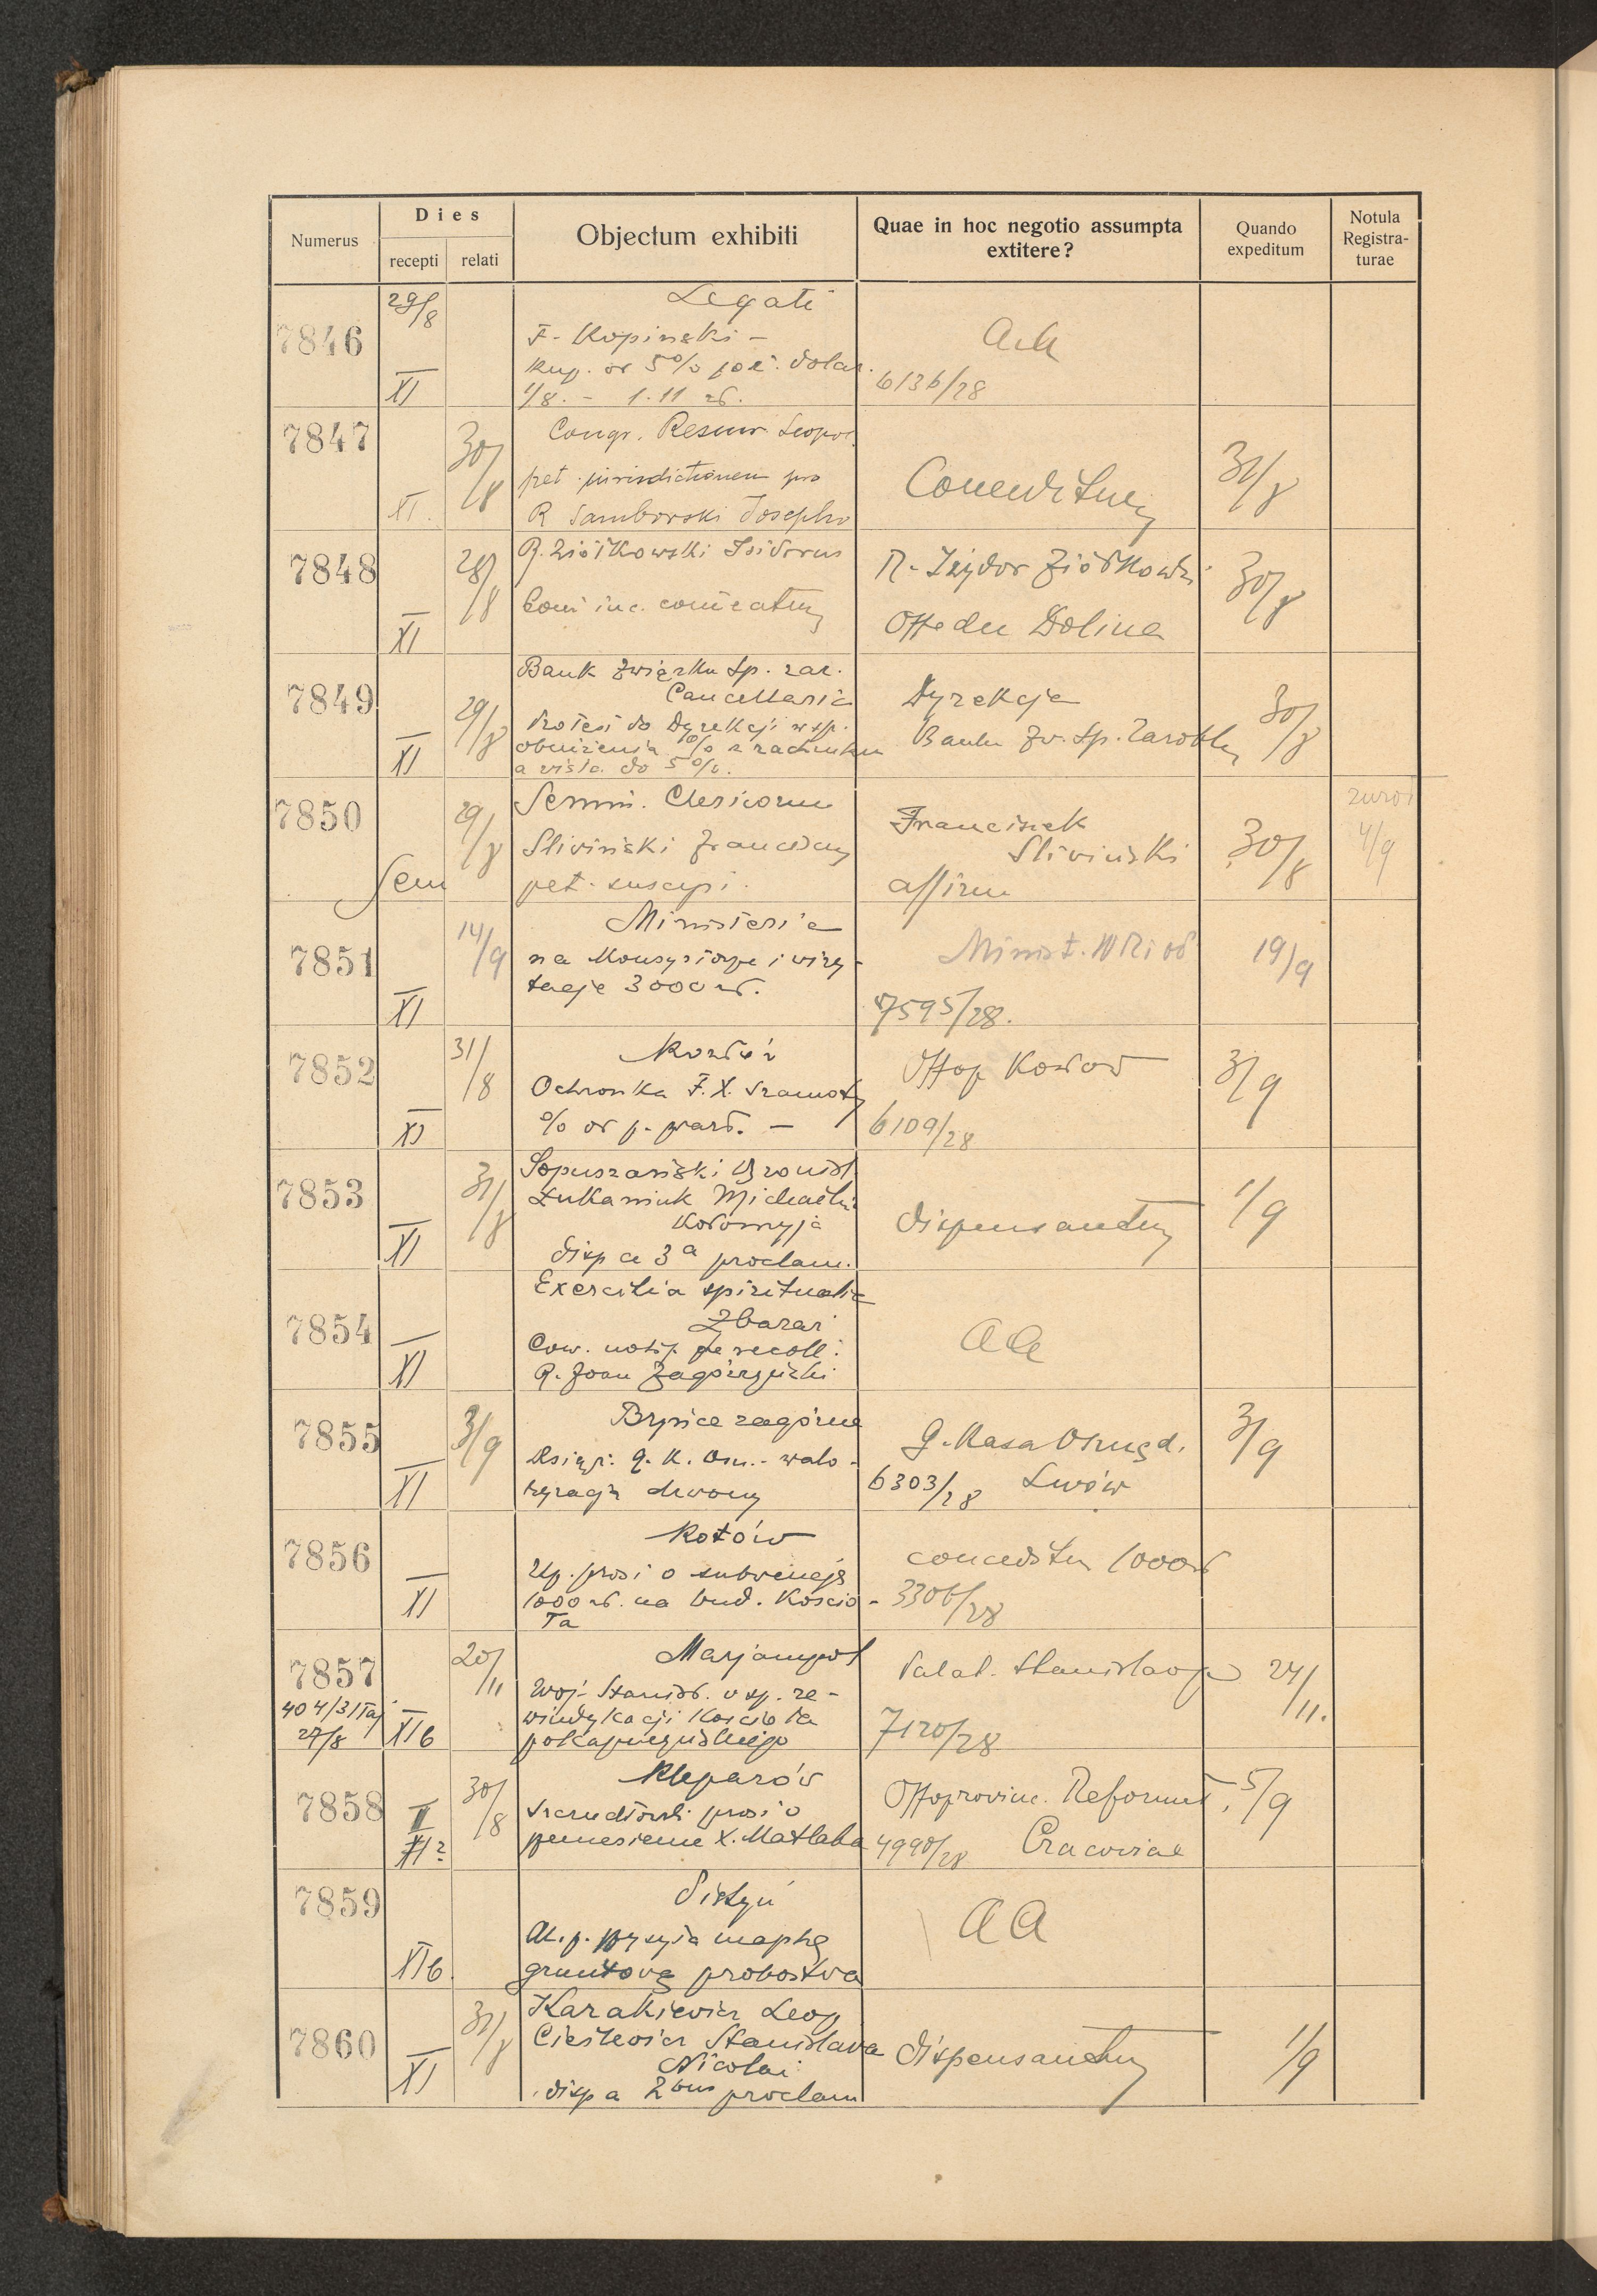 Numerus
Dies
recepti relati
Objectum exhibiti
Quae in hoc negotio assumpta
extitere?
Quando
expeditum
Notula
Registra-
turae
7846
29/8
XI
Legati
F. Kopinski -
kup. od 5% poż. dolar.
1/8. - 1.11 zł.
6136/28
7847
XI.
30/8
Congr. Resurr. Leopol.
pet. jurisdictionem pro
R Samborski Josepho
Conceditur
31/8
7848
XI
28/8
R. Ziółkowski Isidorus
R. Izydor Ziółkowski
Offo dec Dolina
30/8
7849
XI
29/8
Bank Związku Sp. zar.
Cancellaria
Protest do Dyrekcji w sp.
obniżenia % z rachunku
a vista do 5%.
Dyrekcja
Banku Zw. Sp. Zarobk.
30/8
7850
Sem
29/8
Semin. Clericorum
Śliwiński Franciscus
pet. suscepi.
Franciszek
Śliwiński
affirm
30/8
4/9
7851
XI
14/9
Ministeria
na Konsystorze i wizy-
tacje 3000 zł.
Minist. WRi
7595/28.
19/9
7852
XI
31/8
Ochronka F. X.
% od p. państ. -
6109/28
3/9
7853
XI
31/8
Łopuszański Bronisł.
Łukaniuk Michaelina
Kołomyja
disp a 3a proclam.
dispensantur
1/9
7854
XI
Exercitia spiritualia
Zbaraż
Conv. notif. de recoll.
R. Joan Zagórzycki
aa
7855
XI
3/9
Brzsice zagórne
Książ. G. K. Osz. - walo-
ryzacja
G. Kasa Oszczęd.
6303/28 Lwów
3/9
7856
XI
Kotów
Up. prosi o subwencję
1000 zł. na bud. kościo-
ła
conceditur 1000 zł
3306/28
7857
404/31 Taj
27/8
XIb
20/11
Marjampol
Woj. Stanisł. w sp. re-
windykacji kościoła
pokapucyńskiego
Palat. Stanislaop
7120/28
24/11.
7858
II
XI?
30/8
Kleparów
prosi o
przeniesienie X. Matlaka
Offoprovinc. Reformat.
4990/28 Cracoviae
5/9
7859
XIb.
Pistyń
Ur. p. przysyła mapkę
gruntową probostwa
aa
7860
XI
31/8
Karakiewicz Leop
Cieślewicz Stanislava
Nicolai
disp a 2bus proclam
dispensantur
1/9